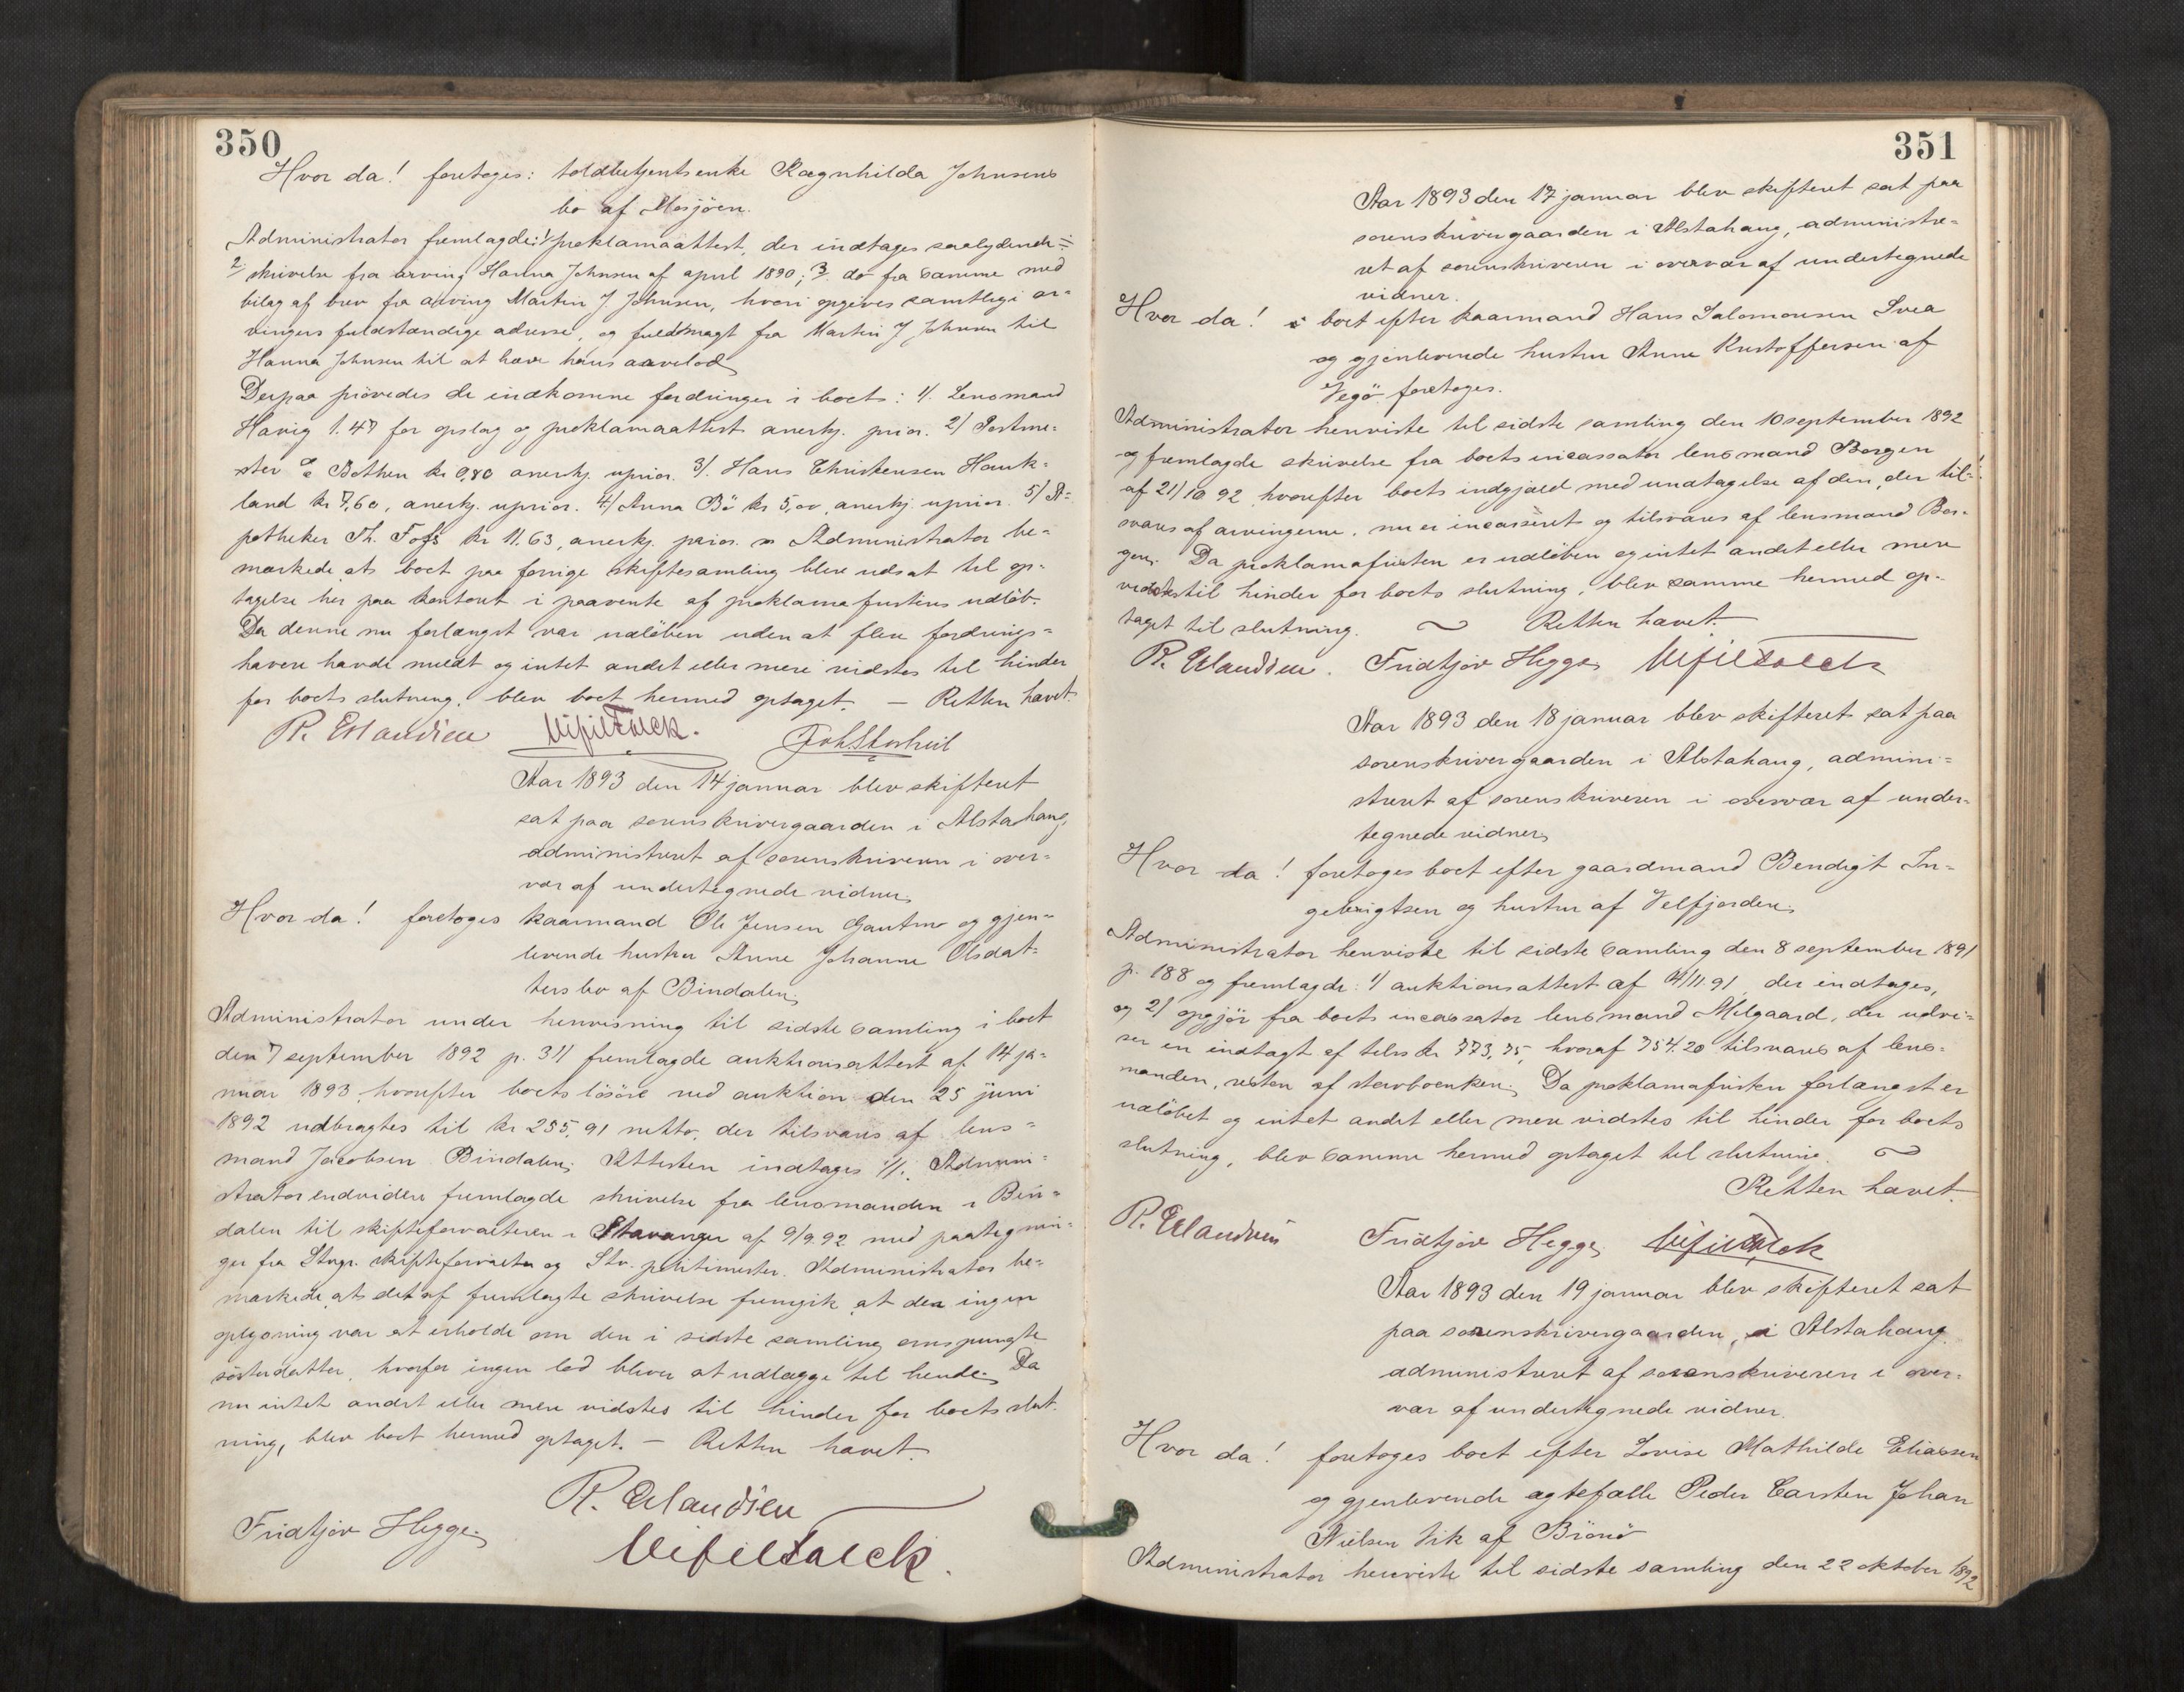 350
Hvor da! foretoges: toldbetjentsenke Ragnhilda Johnsens
bo af Mosjöen.
Administrator fremlagde: 1/ proklamaattest, der indtages saalydende ÷
2/ skrivelse fra arving Hanna Johnsen af april 1890; 3/ do fra samme med
bilag af brev fra arving Martin J Johnsen, hvori opgives samtlige ar=
vingers fuldstændige adresse, og fuldmagt fra Martin J Johnsen til
Hanna Johnsen til at hæve hans arvelod.
Derpaa prövedes de indkomne fordringer i boet: 1/. Lensmand
Havig 1.47 for opslag og proklamaattest anerkj. prior. 2/ Postme=
ster Bothen kr 0,80 anerkj. uprior. 3/. Hans Christensen Hauk=
land kr 7,60, anerkj. uprior. 4/ Anna Bö kr 5,00, anerkj uprior. 5/ A=
potheker Th. Fofs kr 11.63, anerkj. prior. Administrator be=
mærkede, at boet paa forrige skiftesamling blev udsat til op=
tagelse her paa kontoret i paavente af proklamafristens udlöb.
Da denne nu forlængst var udlöben uden at flere fordrings=
havere havde meldt og intet andet eller mere vidstes til hinder
for boets slutning, blev boet hermed optaget. — Retten hævet.
R. Erlandsen
Aar 1893 den 14 januar blev skifteret
sat paa sorenskrivergaarden i Alstahaug,
administreret af sorenskriveren i over=
vær af undertegnede vidner.
Hvor da! foretoges kaarmand Ole Jensen og gjen=
levende hustru Anne Johanne Olsdat=
ters bo af Bindalen.
Administrator under henvisning til sidste samling i boet
den 7 september 1892 p. 311 fremlagde auktionsattest af 14 ja=
nuar 1893, hvorefter boets lösöre ved auktion den 25 juni
1892 udbragtes til kr 255,91 netto, der tilsvares af lens=
mand Jacobsen Bindalen. Attesten indtages //. Admini=
strator endvidere fremlagde skrivelse fra lensmanden i Bin=
dalen til skifteforvalteren i Stavanger af 9/9.92 med paategnin=
ger fra Stvgr. skifteforvalter og Stv. politimester. Administrator be=
mærkede, at det af fremlagte skrivelse fremgik at der ingen
oplysning var at erholde om den i sidste samling omspurgte
sösterdatter, hvorfor ingen lod bliver at udlægge til hende. Da
nu intet andet eller mere vidstes til hinder for boets slut=
ning, blev boet hermed optaget. — Retten hævet.
R. Erlandsen
Fridtjov Hegge.
351
Aar 1893 den 17 januar blev skifteret sat paa
sorenskrivergaarden i Alstahaug, administre=
ret af sorenskriveren i overvær af undertegnede
vidner.
Hvor da! i boet efter kaarmand Hans Salomonsen Svea
og gjenlevende hustru Anne Kristoffersen af
Vegö foretoges.
Administrator henviste til sidste samling den 10 september 1892
og fremlagde skrivelse fra boets incassator lensmand Borgen
af 21/10 92 hvorefter boets indgjæld med undtagelse af den, der til=
svares af arvingerne, nu er incasseret og tilsvares af lensmand Bor=
gen. Da proklamafristen er udlöben og intet andet eller mere
vidstes til hinder for boets slutning, blev samme hermed op=
taget til slutning. ~ Retten hævet.
R. Erlandsen. Fridtjov Hegge,
Aar 1893 den 18 januar blev skifteret sat paa
sorenskrivergaarden i Alstahaug, admini=
streret af sorenskriveren i overvær af under=
tegnede vidner.
Hvor da! foretoges boet efter gaardmand Bendigt In=
gebrigtsen og hustru af Velfjorden.
Administrator henviste til sidste samling den 8 september 1891
p. 188 og fremlagde: 1/ auktionsattest af 4/11.91 der indtages,
og 2/ opgjör fra boets incassator lensmand Milgaard, der udvi=
ser en indtægt af tilsvar 773,75, hvoraf 754.20 tilsvares af lens=
manden, resten af stervboenken. Da proklamafristen forlængst er
udlöbet og intet andet eller mere vidstes til hinder for boets
slutning, blev samme hermed optaget til slutning. ~
Retten hævet.
R. Erlandsen Fridtjov Hegge,
Aar 1893 den 19 januar blev skifteret sat
paa sorenskrivergaarden, i Alstahaug
administreret af sorenskriveren i over=
vær af undertegnede vidner.
Hvor da! foretoges boet efter Lovise Mathilde Eliassen
og gjenlevende ægtefælle Peder Carsten Johan
Nielsen Vik af Brönö
Administrator henviste til sidste samling den 22 oktober 1892